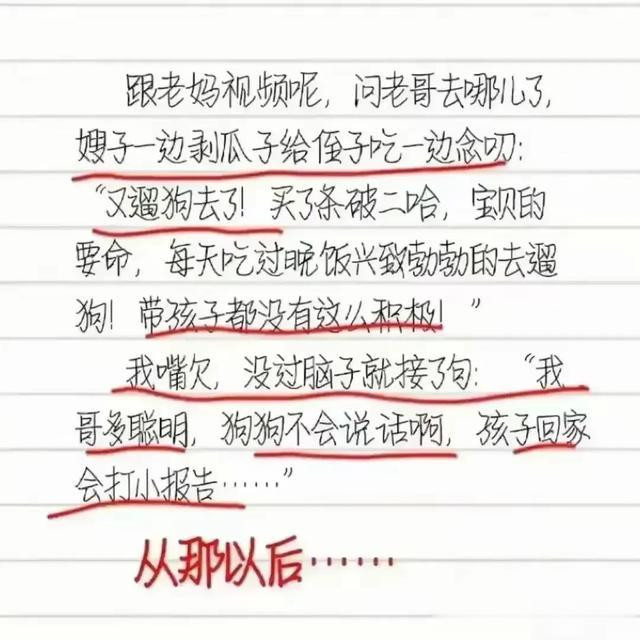 跟老妈视频呢，问老哥去哪儿了，
嫂子一边剥瓜子给侄子吃一边念叨：
“又遛狗去了！买了条破二哈，宝贝的
要命，每天吃过晚饭兴致勃勃的去遛
狗！带孩子都没有这么积极！”
我嘴欠，没过脑子就接了句：“我
哥多聪明，狗狗不会说话啊，孩子回家
会打小报告……”
从那以后……